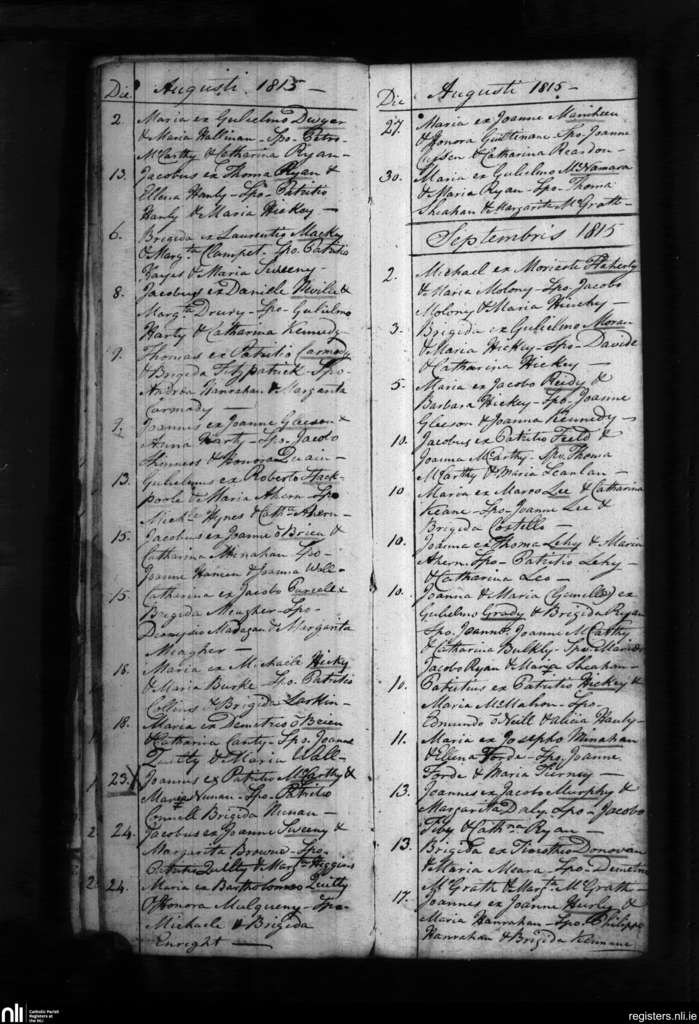 Die Augusti 1815
2. Maria ex Gulielmo Dwyer
& Maria Hallinan - Spo. Petro
McCarthy & Catharina Ryan -
13. Jacobus ex Thoma Ryan &
Ellena Hanly - Spo. Patritio
Hanly & Maria Hickey -
6. Brigida ex Laurentio Mackey
& Margta. Clampet. Spo. Patritio
Hayes & Maria Sweeny -
8. Jacobus ex Daniele &
Margta. Drury - Spo. Gulielmo
Harty & Catharina Kennedy
9. Thomas ex Patritio Carmody
& Brigida Fitzpatrick Spo.
Andrea Hanrahan & Margarita
Carmody -
9. Joannes ex Joanne Gleeson &
Anna Harty - Spo. Jacobo
& Honora Quain -
13. Gulielmus ex Roberto Stack-
poole & Maria Ahern - Spo
Michle. Hynes & Cathna. Ahern -
15. Jacobus ex Joanne o Brien &
Catharina Minahan Spo -
Joanne & Joanna Wall -
15. Catharina ex Jacobo Purcell &
Brigida Meagher - Spo -
Dionysio Madagan & Margarita
Meagher -
18. Maria ex Michaele Hickey
& Maria Burke - Spo. Patritio
Collins & Brigida Larkin -
18. Maria ex Demetrio o Brien
& Catharina Carty - Spo. Joanne
Quilty & Maria Wall -
23. X Joannes ex Patritio McCarthy &
Maria Nunan - Spo. Patritio
Connell Brigida Nunan -
24. Jacobus ex Joanne Sweeny &
Margarita Browne - Spo -
Patritio Quilty & Margta. Higgins
24. Maria ex Bartholomeo Quilty
& Honora Mulqueny - Spo -
Michaele & Brigida
Enright -
Die Augusti 1815
27. Maria ex Joanne
& Honora Spo. Joanne
& Catharina Reardon -
30. Maria ex Gulielmo McNamara
& Maria Ryan - Spo. Thoma
Sheahan & Margarita McGrath -
Septembris 1815
2. Michael ex Flaherty
& Maria Molony - Spo. Jacobo
Molony & Maria Hickey -
3. Brigida ex Gulielmo Moran
& Maria Hickey - Spo - Davide
& Catharina Hickey -
5. Maria ex Jacobo Reidy &
Barbara Hickey - Spo. Joanne
Gleeson & Joanna Kennedy -
10. Jacobus ex Patritio Field &
Joanna McCarthy - Spo. Thoma
McCarthy & Maria Scanlan -
10 Maria ex Marco Lee & Catharina
Keane - Spo - Joanne Lee &
Brigida Costello -
10. Joanna ex Thoma Lehy & Maria
Ahern Spo - Patritio Lehy -
& Catharina Leo -
10. Joanna & Maria (Gemilla) ex
Gulielmo Grady & Brigida Ryan
Spo. Joannæ Joanne McCarthy
& Catharina Bulkly - Spo. Mariæ
Jacobo Ryan & Maria Sheahan -
10. Patritius ex Patritio Hickey &
Maria McMahon - Spo -
Edmundo o Neill & Alicia Hanly -
11. Maria ex Josepho Minahan
& Ellena Forde - Spo. Joanne
Forde & Maria Tierney -
13. Joannes ex Jacobo Murphy &
Margarita Daly - Spo - Jacobo
& Cathna. Ryan -
13. Brigida ex Timotheo Donovan
& Maria Meara - Spo - Demetrio
McGrath & Margta. McGrath -
17. Joannes ex Joanne Hurley &
Maria Hanrahan - Spo. Philippo
Hanrahan & Brigida
nli
Catholic Parish
Registers at
the NLI
registers.nli.ie